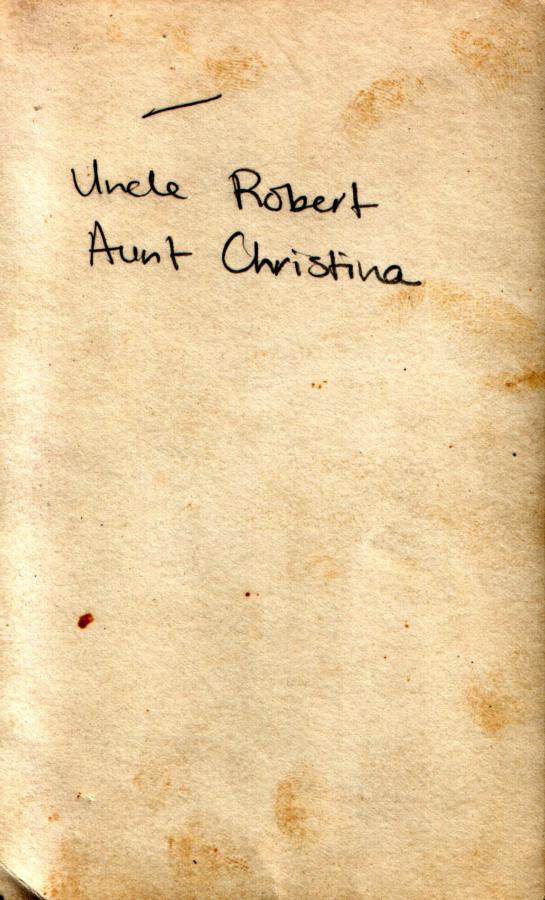 Uncle Robert
Aunt Christina